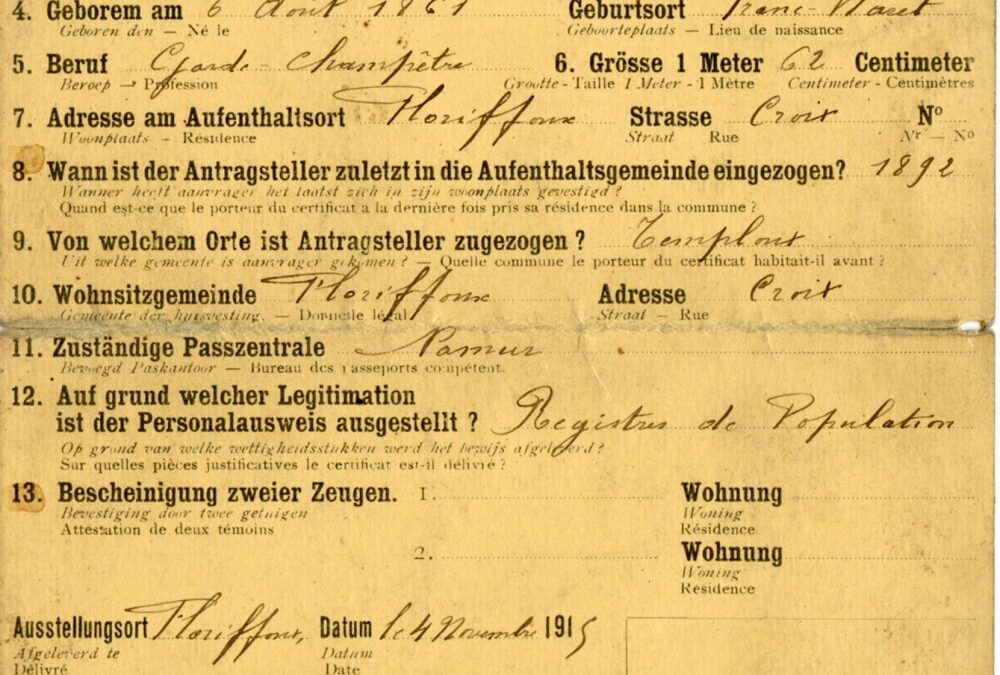 4. Geborem am 6 Août 1861 Geburtsort Franc-Waret
Geboren den — Né le Geboorteplaats — Lieu de naissance
5. Beruf Garde-Champêtre 6. Grösse 1 Meter 62 Centimeter
Beroep — Profession Grootte - Taille 1 Meter - 1 Mètre Centimeter - Centimètres
7. Adresse am Aufenthaltsort Floriffoux Strasse Croix Nº
Woonplaats - Résidence Straat Rue Nr — Nº
8. Wann ist der Antragsteller zuletzt in die Aufenthaltsgemeinde eingezogen? 1892
Wanner heeft aanvrager het laatst zich in zijn woonplaats gevestigd ?
Quand est-ce que le porteur du certificat a la dernière fois pris sa résidence dans la commune ?
9. Von welchem Orte ist Antragsteller zugezogen ? Temploux
Uit welke gemeente is aanvrager gekomen ? — Quelle commune le porteur du certificat habitait-il avant ?
10. Wohnsitzgemeinde Floriffoux Adresse Croix
Gemeente der huisvesting. — Domicile légal Straat — Rue
11. Zuständige Passzentrale Namur
Bevoegd Paskantoor — Bureau des passeports compétent.
12. Auf grund welcher Legitimation
ist der Personalausweis ausgestellt ? Registres de Population
Op grond van welke wettigheidsstukken werd het bewijs afgeleverd ?
Sur quelles pièces justificatives le certificat est-il délivré ?
13. Bescheinigung zweier Zeugen. 1. Wohnung
Bevestiging door twee getuigen Woning
Attestation de deux témoins Résidence
2. Wohnung
Woning
Résidence
Ausstellungsort Floriffoux, Datum le 4 Novembre 1915
Afgeleverd te Datum
Délivré Date